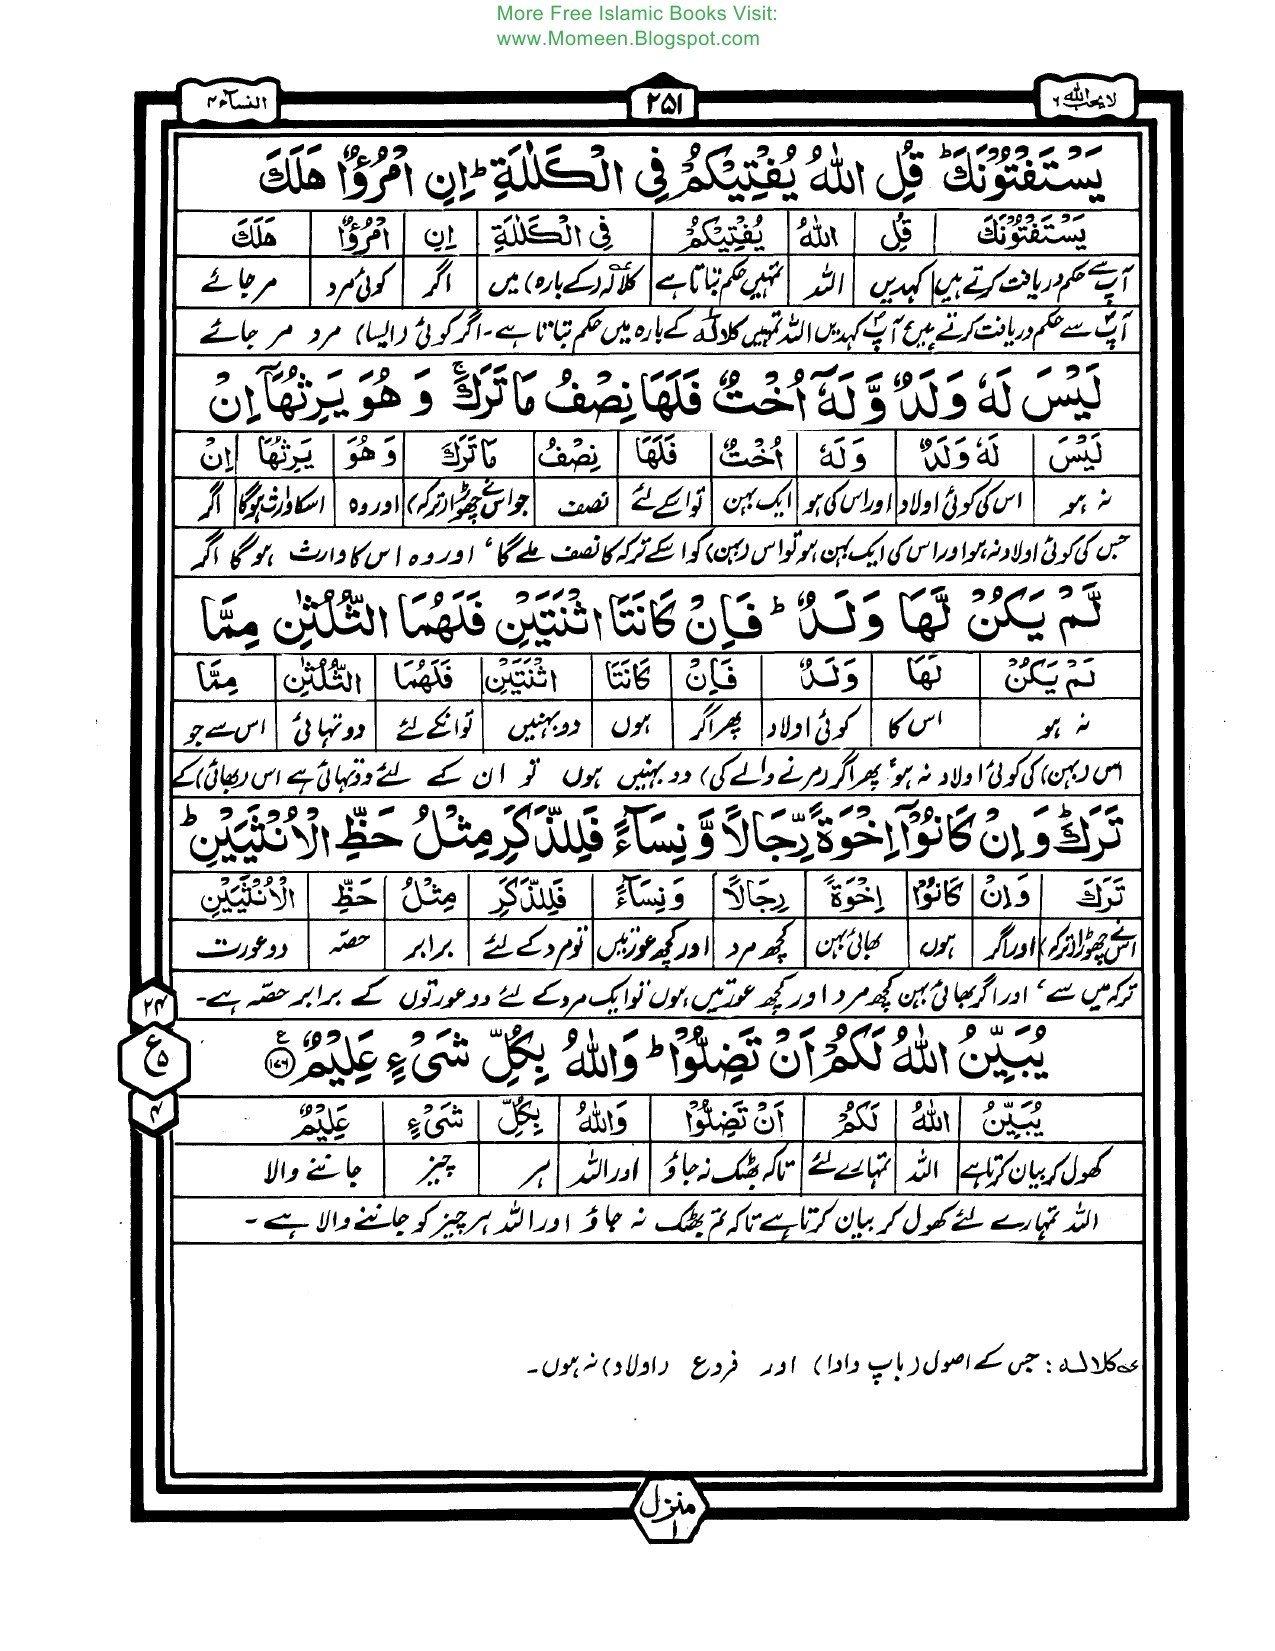 More Free Islamic Books Visit:
www.Momeen.Blogspot.com
لا یحب اللہ ۶
۲۵۱
النسآء ۴
يَسْتَفْتُوْنَكَ ؕ قُلِ اللّٰهُ يُفْتِيْكُمْ فِي الْكَلٰلَةِ ؕ اِنِ امْرُؤٌا هَلَكَ
يَسْتَفْتُوْنَكَ قُلِ اللّٰهُ يُفْتِيْكُمْ فِي الْكَلٰلَةِ اِنِ امْرُؤٌا هَلَكَ
آپ سے حکم دریافت کرتے ہیں کہدیں اللہ تمہیں حکم بتاتا ہے کلالہ (کے بارہ) میں اگر کوئی مرد مر جائے
آپ سے حکم دریافت کرتے ہیں آپ کہدیں اللہ تمہیں کلالہ کے بارہ میں حکم بتاتا ہے۔ اگر کوئی (ایسا) مرد مر جائے
لَيْسَ لَهٗ وَلَدٌ وَّلَهٗۤ اُخْتٌ فَلَهَا نِصْفُ مَا تَرَكَ ۚ وَ هُوَ يَرِثُهَاۤ اِنْ
لَيْسَ لَهٗ وَلَدٌ وَلَهٗ اُخْتٌ فَلَهَا نِصْفُ مَا تَرَكَ وَ هُوَ يَرِثُهَا اِنْ
نہ ہو اس کی کوئی اولاد اور اس کی ہو ایک بہن تو اسکے لئے نصف جو اس نے چھوڑا (ترکہ) اور وہ اسکا وارث ہوگا اگر
جس کی کوئی اولاد نہ ہو اور اس کی ایک بہن ہو تو اس (بہن) کو اسکے ترکہ کا نصف ملے گا، اور وہ اس کا وارث ہو گا اگر
لَّمْ يَكُنْ لَّهَا وَلَدٌ ؕ فَاِنْ كَانَتَا اثْنَتَيْنِ فَلَهُمَا الثُّلُثٰنِ مِمَّا
لَمْ يَكُنْ لَهَا وَلَدٌ فَاِنْ كَانَتَا اثْنَتَيْنِ فَلَهُمَا الثُّلُثٰنِ مِمَّا
نہ ہو اس کا کوئی اولاد پھر اگر ہوں دو بہنیں تو انکے لئے دو تہائی اس سے جو
اس (بہن) کی کوئی اولاد نہ ہو، پھر اگر (مرنے والے کی) دو بہنیں ہوں تو ان کے لئے دو تہائی ہے اس (بھائی) کے
تَرَكَ ؕ وَ اِنْ كَانُوْۤا اِخْوَةً رِّجَالًا وَّ نِسَآءً فَلِلذَّكَرِ مِثْلُ حَظِّ الْاُنْثَيَيْنِ ؕ
تَرَكَ وَ اِنْ كَانُوْا اِخْوَةً رِجَالًا وَ نِسَآءً فَلِلذَّكَرِ مِثْلُ حَظِّ الْاُنْثَيَيْنِ
اس نے چھوڑا (ترکہ) اور اگر ہوں بھائی بہن کچھ مرد اور کچھ عورتیں تو مرد کے لئے برابر حصّہ دو عورت
ترکہ میں سے، اور اگر بھائی بہن کچھ مرد اور کچھ عورتیں ہوں تو ایک مرد کے لئے دو عورتوں کے برابر حصّہ ہے۔
يُبَيِّنُ اللّٰهُ لَكُمْ اَنْ تَضِلُّوْا ؕ وَاللّٰهُ بِكُلِّ شَيْءٍ عَلِيْمٌ ۧ ۱۷۶
۲۴
ع ۵
۴
يُبَيِّنُ اللّٰهُ لَكُمْ اَنْ تَضِلُّوْا وَاللّٰهُ بِكُلِّ شَيْءٍ عَلِيْمٌ
کھول کر بیان کرتا ہے اللہ تمہارے لئے تاکہ بھٹک نہ جاؤ اور اللہ ہر چیز جاننے والا
اللہ تمہارے لئے کھول کر بیان کرتا ہے تاکہ تم بھٹک نہ جاؤ اور اللہ ہر چیز کو جاننے والا ہے۔
کلالہ: جس کے اصول (باپ دادا) اور فروع (اولاد) نہ ہوں۔
منزل ۱